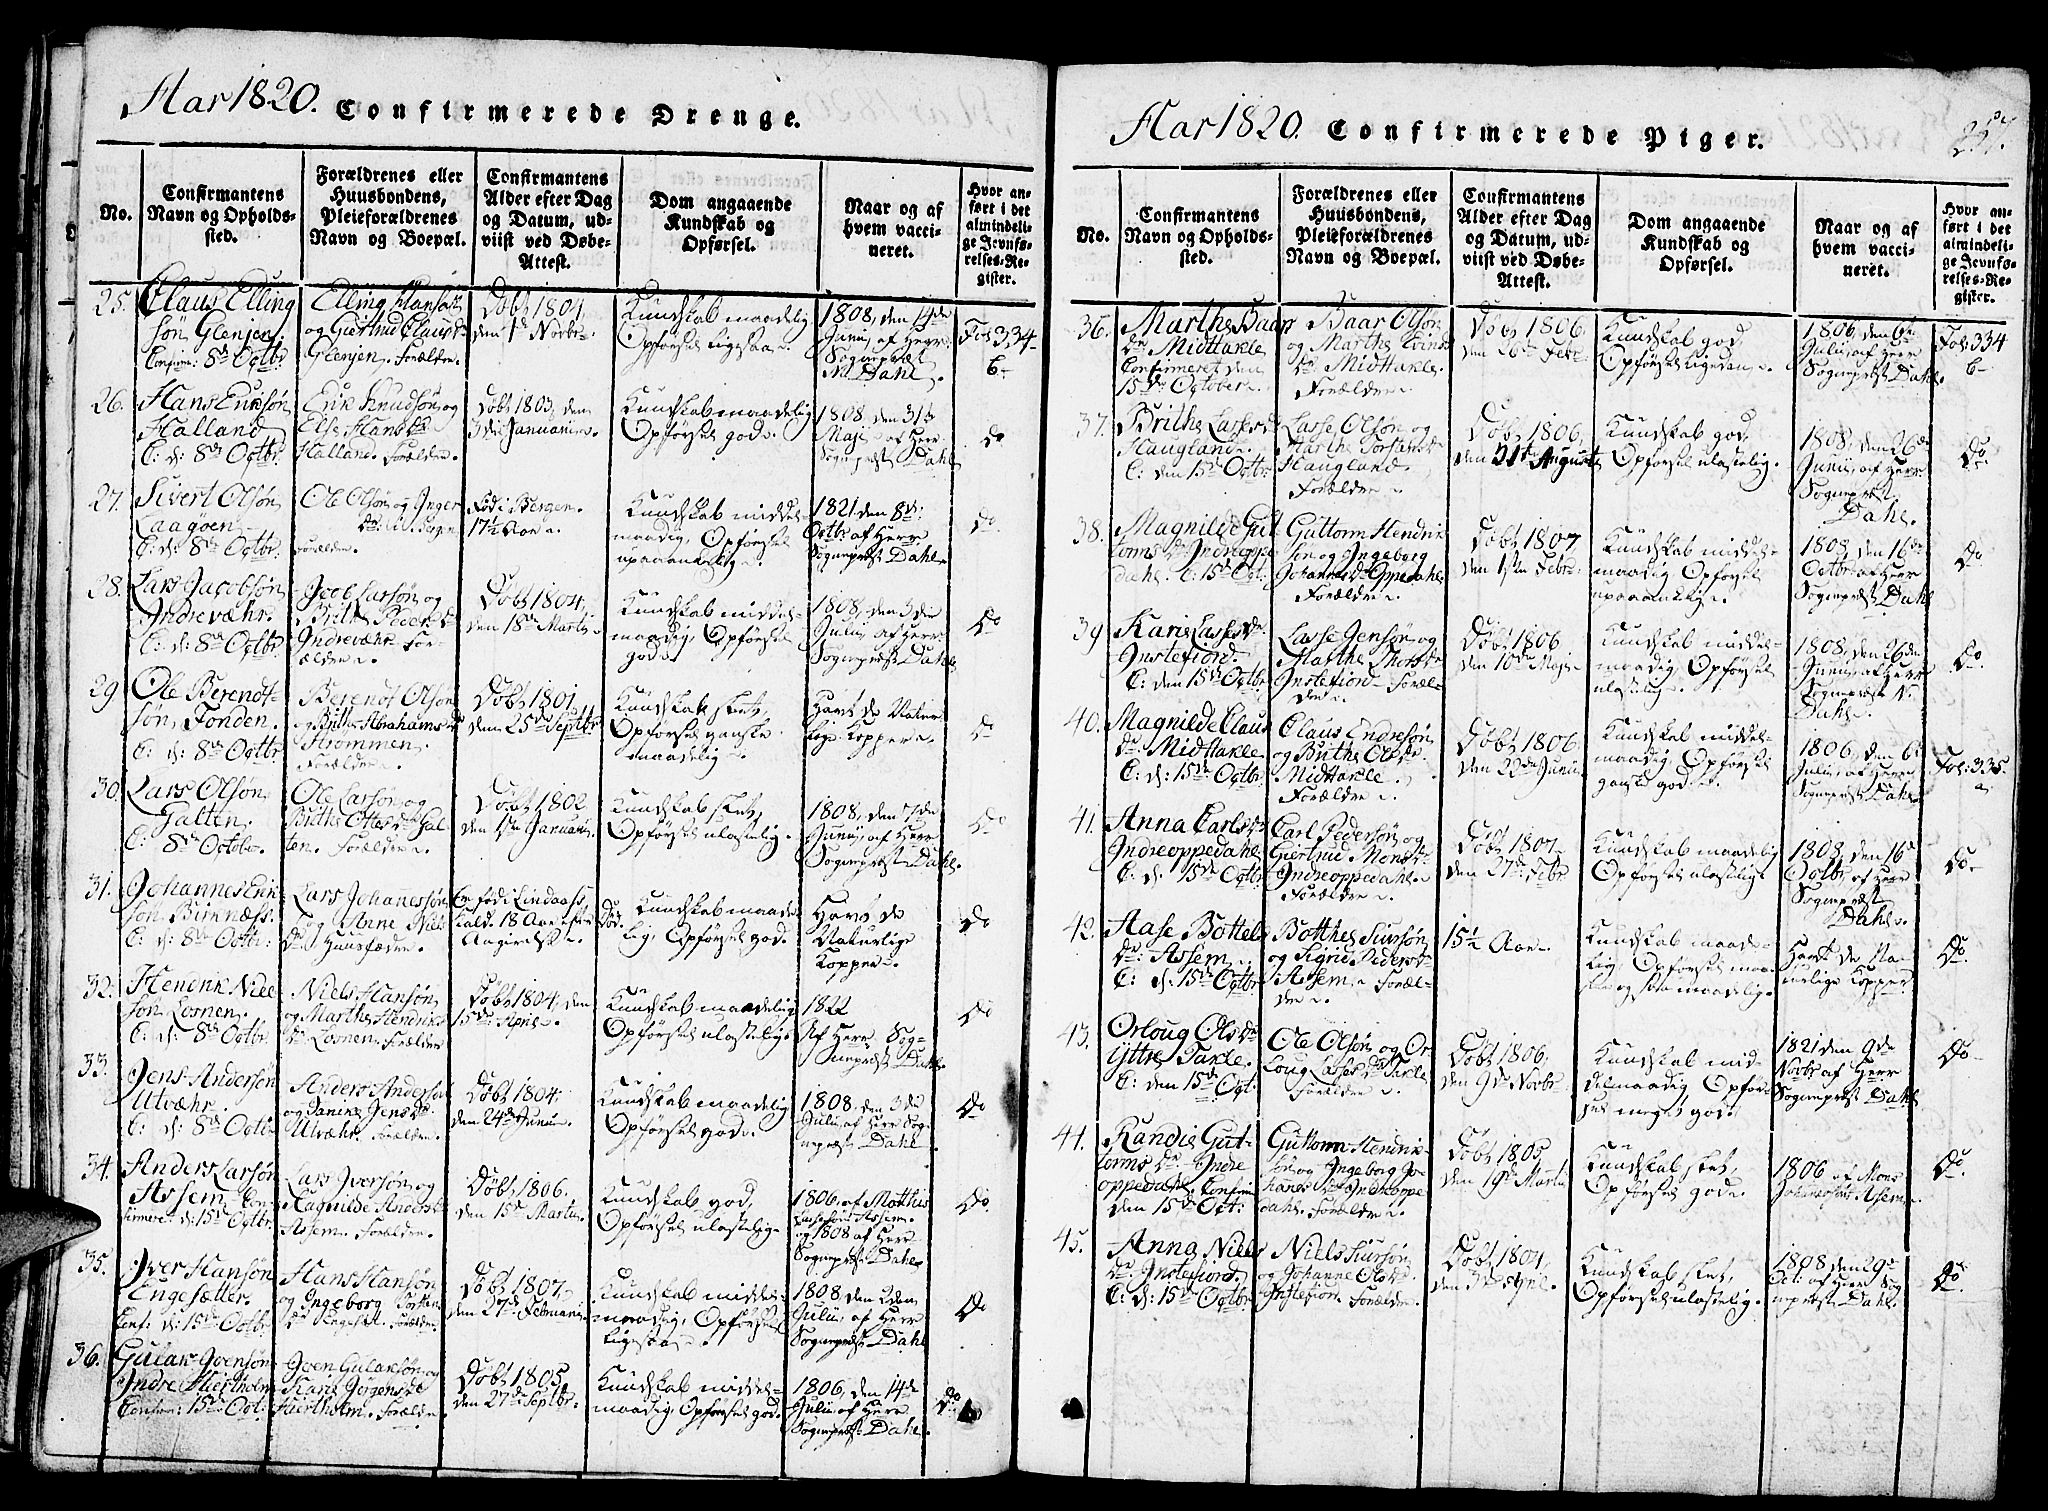 Aar 1820. Confirmerede Drenge.
No.
Confirmantens
Navn og Opholds-
sted.
Forældrenes eller
Huusbondens,
Pleieforældrenes
Navn og Boepæl.
Confirmantens
Alder efter Dag
og Datum, ud-
viist ved Døbe-
Attest.
Dom angaaende
Kundskab og
Opførsel.
Naar og af
hvem vacci-
neret.
Hvor an-
ført i det
almindeli-
ge Jevnfø-
relses-Re-
gister.
25.
Claus Elling
søn Glenjen,
Confirm: 8de Octbr.
Elling Hansøn
og Giertrud Clausdr
Glenjen. Forældre.
Døbt 1804,
den 1te Novbr.
Kundskab maadelig
Opførsel ligesaa.
1808, den 14de
Junii, af Herr
Sognepræst
N. Dahl.
Fol: 334
b.
26.
Hans Eriksøn
Halland
C: d: 8de Octbr.
Erik Knudsøn og
Else Hansdr
Halland. Forældre.
Døbt 1803, den
3die Januarii.
Kundskab maadelig
Opførsel god.
1808, den 31te
Maji af Herr
Sognepræst Dahl
do
27.
Sivert Olsøn
Laagøen
C: d: 8de Octbr.
Ole Olsøn og Inger
Forældre.
Fød i Bergen.
17½ Aar.
Kundskab middel-
maadig, Opførsel
upaaankelig.
1821 den 8de
Octbr af Herr
Sognepræst Dahl.
do
28.
Lars Jacobsøn
Indrevæhr.
C: d: 8de Octbr.
Jacob Larsøn og
Brithe Pedersdr
Indrevæhr. For-
ældre.
Døbt 1804,
den 18de Martii
Kundskab middel-
maadig, Opførsel
god.
1808, den 3die
Julii, af Herr
Sognepræst Dahl.
do
29.
Ole Berendt-
søn Tonden.
C: d: 8de Octbr.
Berendt Olsøn
og Brithe Abrahamsdr
Strømmen.
Forældre.
Døbt 1801,
den 25de Septbr.
Kundskab slet,
Opførsel ganske
maadelig.
Havt de Natur-
lige Kopper.
do
30.
Lars Olsøn
Galten.
C: 8de October.
Ole Larsøn og
Brithe Ottesdr Gal-
ten. Forældre.
Døbt 1802
den 1ste Januarii.
Kundskab slet,
Opførsel ulastelig.
1808, den 7de
Junii, af Herr
Sognepræst Dahl.
do
31.
Johannes Erik-
søn Birknæss.
C: d: 8de Octbr:
Lars Johannessøn
og Anne Niels
dr Huusfædre.
Er fød i Lindaas
18 Aar efter
Angivelse.
Kundskab maade-
lig, Opførsel god.
Havt de
Naturlige
Kopper.
do
32.
Hendrik Niel-
søn Losnen.
C: d: 8de Octbr.
Niels Hansøn
og Marthe Hendriks
dr Losnen. Forældre
Døbt 1804, den
15de April.
Kundskab maadelig
Opførsel ulastelig.
1822
Af Herr Sog-
nepræst Dahl.
do
33.
Jens Andersøn
Utvæhr.
C: d: 8de Octbr
Anders Andersøn
og Janike Jensdr
Utvæhr. Forældre.
Døbt 1804.
den 24de Junii.
Kundskab maadelig
Opførsel god.
1808, den 3die
Julii, af Herr Sog-
nepræst Dahl
do
34.
Anders Larsøn
Assem Con-
firmeret d: 15de Octbr.
Lars Iversøn og
Magnilde Andersdr
Assem. Forældre.
Døbt 1806.
den 15de Martii.
Kundskab god,
Opførsel ulastelig.
1806. af Motthis
Lassesøn Assem.
og 1808 af Herr
Sognepræst Dahl.
do
35.
Iver Hansøn
Engesætter.
Conf: d: 15de Octbr
Hans Hansøn
og Ingeborg
Engesæt. Forældre.
Døbt 1807.
den 27de Februarii.
Kundskab middel-
maadig, Opførsel
ligesaa.
1808 den 2den
Julii, af Herr
Sognepræst Dahl
do
36.
Gulak Ivensøn
Indre Hiertholm
Confirm: 15de Oct:
Iven Gulaksøn og
Karie Jørgensdr
Hiertholm. Forældre.
Døbt 1805,
den 27de Septbr.
Kundskab middel-
maadig, Opførsel god.
1806, den 14de
Julii, af Herr
Sognepræst Dahl.
do
Aar 1820. Confirmerede Piger.
No.
Confirmantens
Navn og Opholds-
sted.
Forældrenes eller
Huusbondens,
Pleieforældrenes
Navn og Boepæl.
Confirmantens
Alder efter Dag
og Datum, ud-
viist ved Døbe-
Attest.
Dom angaaende
Kundskab og
Opførsel.
Naar og af
hvem vacci-
neret.
Hvor an-
ført i det
almindeli-
ge Jevnfø-
relses-Re-
gister.
36.
Marthe Baar
dr Midttakle
Confirmeret den
15de October.
Baar Olsøn
og Marthe Evinds
dr Midttakle.
Forældre.
Døbt 1806.
den 26de Febr.
Kundskab god,
Opførsel ligedan.
1806, den 6te
Julii, af Herr
Sognepræst Dahl.
Fol: 334
b
37.
Brithe Lassesdr
Haugland.
C: den 15de Octbr.
Lasse Olsøn og
Marthe Torstensdr
Haugland.
Forældre.
Døbt 1806,
den 31te August
Kundskab god,
Opførsel ulastelig.
1808, den 26de
Junii, af Herr
Sognepræst
Dahl.
do
38.
Magnilde Gut-
tormsdr Indreoppe-
dahl. C: 15de Oct:
Guttorm Hendrik-
søn og Ingeborg
Johannesdr Oppedahl.
Forældre.
Døbt 1807
den 1ste Febr.
Kundskab middel-
maadig Opførsel
upaaankelig.
1808, den 16de
Octbr af Herr
Sognepræst Dahl
do
39
Karie Lassesdr
Instefiord.
C: den 15de Octbr.
Lasse Jensøn og
Marthe Thoresdr
Instefiord. Foræl-
dre.
Døbt 1806
den 10de Maji
Kundskab middel-
maadig, Opførsel
ulastelig.
1808, den 26de
Junii, af Herr
Sognepræst N.
Dahl.
do
40.
Magnilde Claus
dr Midttakle
C: d: 15de Octbr.
Claus Endresøn
og Brithe Olsdr
Midttakle.
Forældre.
Døbt 1806.
den 22de Junii
Kundskab middel-
maadig, Opførsel
ganske god.
1806, den 6te
Julii, af Herr
Sognepræst Dahl.
Fol: 335.
a
41.
Anna Carlsdr
Indreoppedahl
C: d: 15de Octbr.
Carl Pedersøn og
Giertrud Monsdr
Indreoppedahl.
Forældre.
Døbt 1807
den 27de Febr.
Kundskab maadelig
Opførsel ulastelig.
1808, den 16de
Octbr af Herr
Sognepræst
Dahl.
do
42.
Aase Bottels
dr Assem.
C: d: 15de Octbr.
Botthel Siursøn
og Sigrid Pedersdr
Assem. Foræl-
dre.
15½ Aar.
Kundskab maade-
lig, Opførsel
maadelig.
Havt de Na-
turlige Kopper
do
43.
Orloug Olsdr
Yttre Takle.
C: den 15de Oct.
Ole Olsøn og Or-
loug Lassesdr Takle
Forældre.
Døbt 1806,
den 9de Novbr.
Kundskab mid-
delmaadig Opfør-
sel meget god.
1821 den 9de
Novbr af Herr
Sognepræst Dahl.
do
44.
Randie Gut-
tormsdr Indre
oppedahl. Confirm:
den 15de Oct:
Guttorm Hendrik-
søn og Ingeborg Jo-
hannesdr Indreoppe-
dahl. Forældre.
Døbt 1805
den 19de Martii
Kundskab slet,
Opførsel god.
1806 af Mons
Johannessøn Assem.
do
45.
Anna Niels
dr Instefiord.
C: d: 15de Octbr.
Niels Siursøn
og Johanne Olsdr
Instefiord. Forældre.
Døbt 1804,
den 3die April
Kundskab slet,
Opførsel ulastelig.
1808 den 29de
Oct: af Herr Sog-
nepræst Dahl.
do